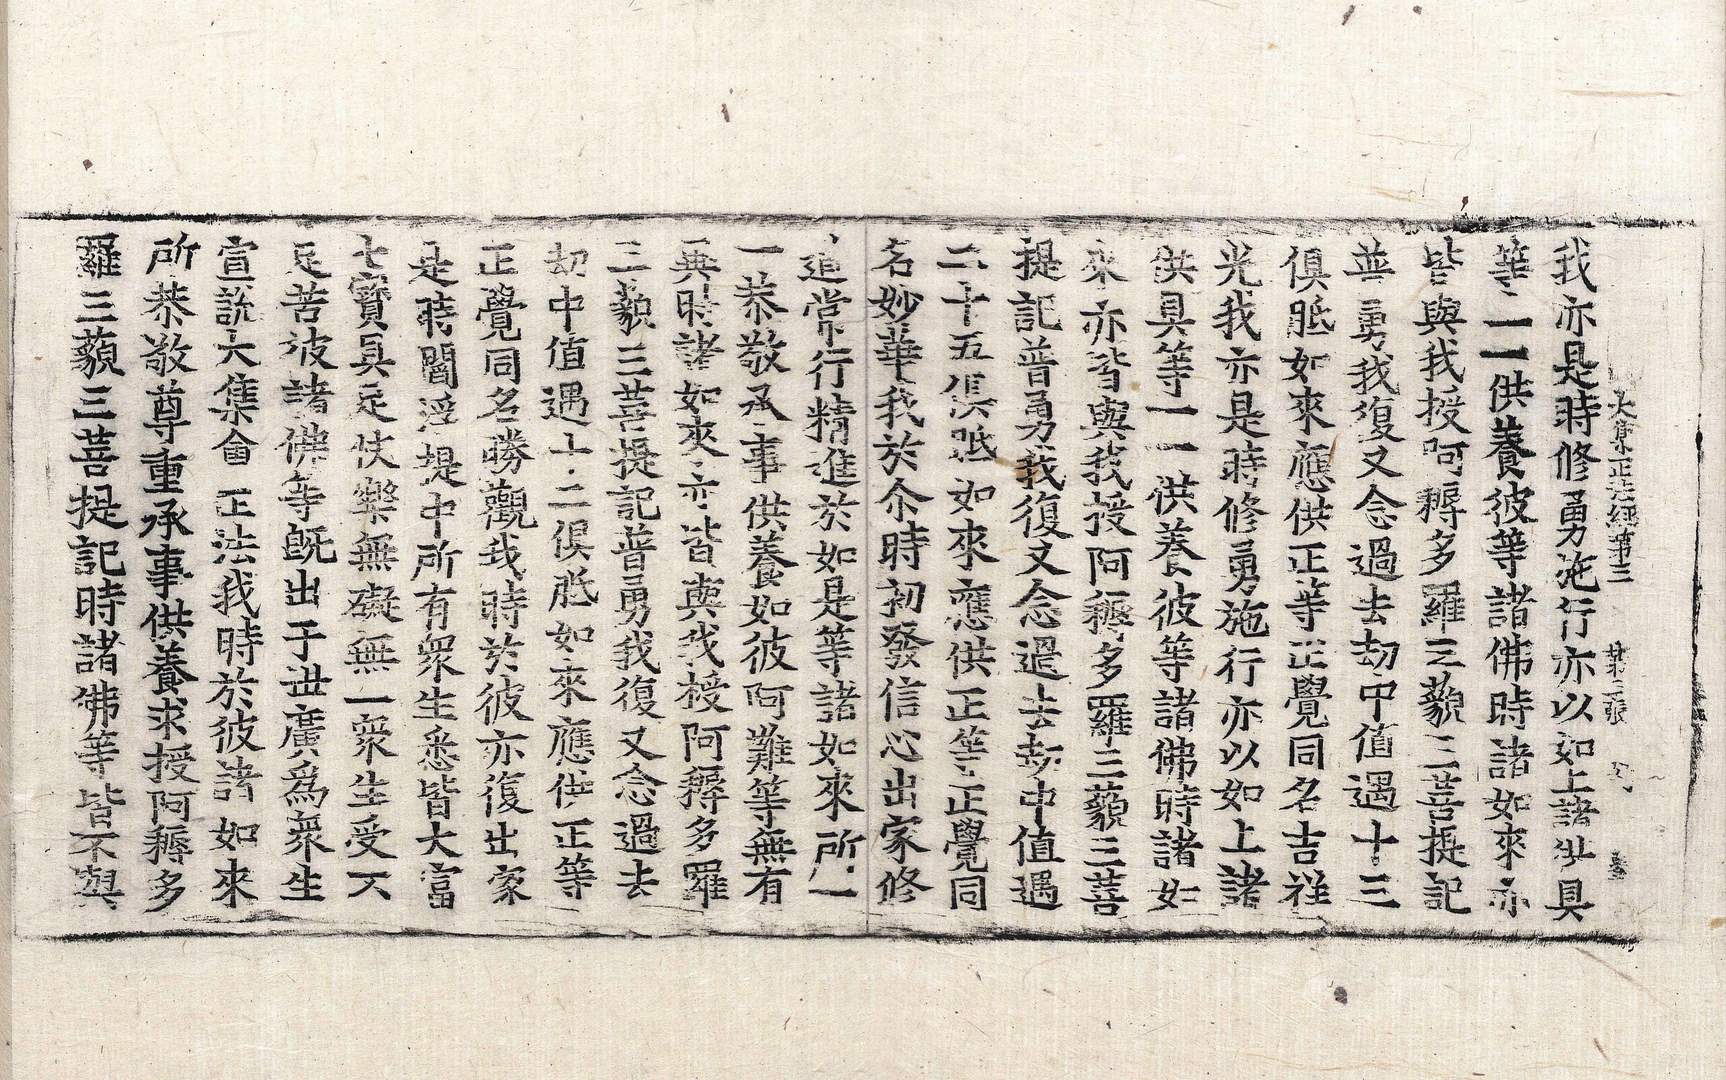 大集正法經第三　第二張　　墨
我亦是時修勇施行亦以如上諸供具
等一一供養彼等諸佛時諸如來亦
皆與我授阿耨多羅三藐三菩提記
普勇我復又念過去劫中值遇十三
俱胝如來應供正等正覺同名吉祥
光我亦是時修勇施行亦以如上諸
供具等一一供養彼等諸佛時諸如
來亦皆與我授阿耨多羅三藐三菩
提記普勇我復又念過去劫中值遇
二十五俱胝如來應供正等正覺同
名妙華我於尒時初發信心出家修
道常行精進於如是等諸如來所一
一恭敬承事供養如彼阿難等無有
異時諸如來亦皆與我授阿耨多羅
三藐三菩提記普勇我復又念過去
劫中值遇十二俱胝如來應供正等
正覺同名勝觀我時於彼亦復出家
是時閻浮提中所有眾生悉皆大富
七寶具足快樂無礙無一眾生受不
足苦彼諸佛等旣出于世廣爲眾生
宣說大集會正法我時於彼諸如來
所恭敬尊重承事供養求授阿耨多
羅三藐三菩提記時諸佛等皆不與